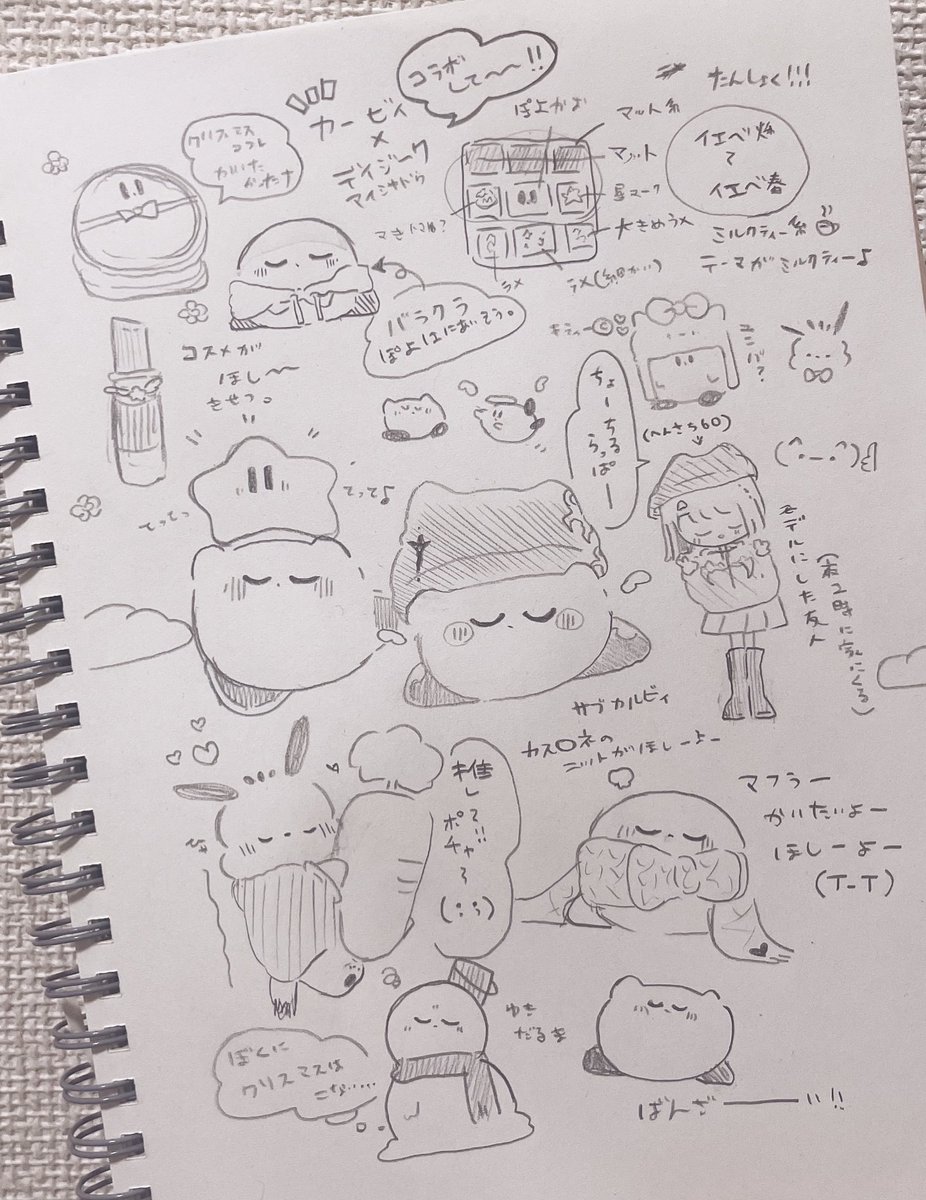 コラボ
して〜〜!!
カービィ
×
デイジーク
アイシャドウ
クリスマス
コフレ
かいた
かったナ
ぽよかお
マット系
マット
星マーク
大きめラメ
ラメ(細かい)
ラメ
まきトマト?
たんしょく!!!
イエベ秋
て
イエベ春
ミルクティー系
テーマがミルクティー♪
バラクラ
ぽよはにあいそう。
コスメが
ほし〜〜
きせつ。
キティー©
ユニバ?
ちょーちるらっぱー
(へんさち60)
モデルにした友人
(夜2時に家にくる)
てってっ
てって♪
サブカルビィ
カス〇ネの
ニットがほしーよー
マフラー
かいたいよー
ほしーよー
(T-T)
推して!!
ポチャ
ゆき
だるま
ぼくに
クリスマスは
こな……
ばんざ――い!!